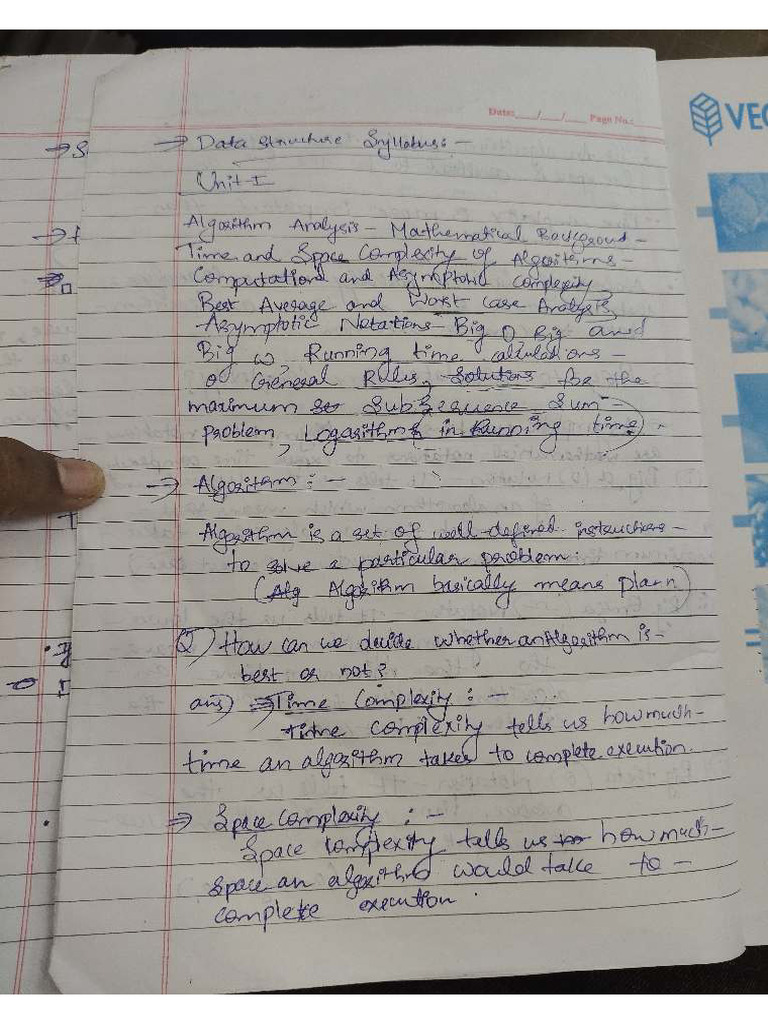 Date: __/__/__ Page No.:
VEC
→ Data structure Syllabus: -
Unit-I
Algorithm Analysis - Mathematical Background -
Time and Space Complexity of Algorithms -
Computational and Asymptotic complexity,
Best Average and Worst case Analysis,
Asymptotic Notations - Big O, Big and
Big ω, Running time calculations -
General Rules, Solutions for the
maximum Subsequence Sum -
Problem, Logarithms in Running time.
→ Algorithm : -
Algorithm is a set of well-defined instructions -
to solve a particular problem.
(Algorithm basically means plan)
Q) How can we decide whether an Algorithm is -
best or not?
ans) ⇒ Time Complexity : -
time complexity tells us how much -
time an algorithm takes to complete execution.
⇒ Space complexity : -
Space complexity tells us how much -
space an algorithm would take to -
complete execution.